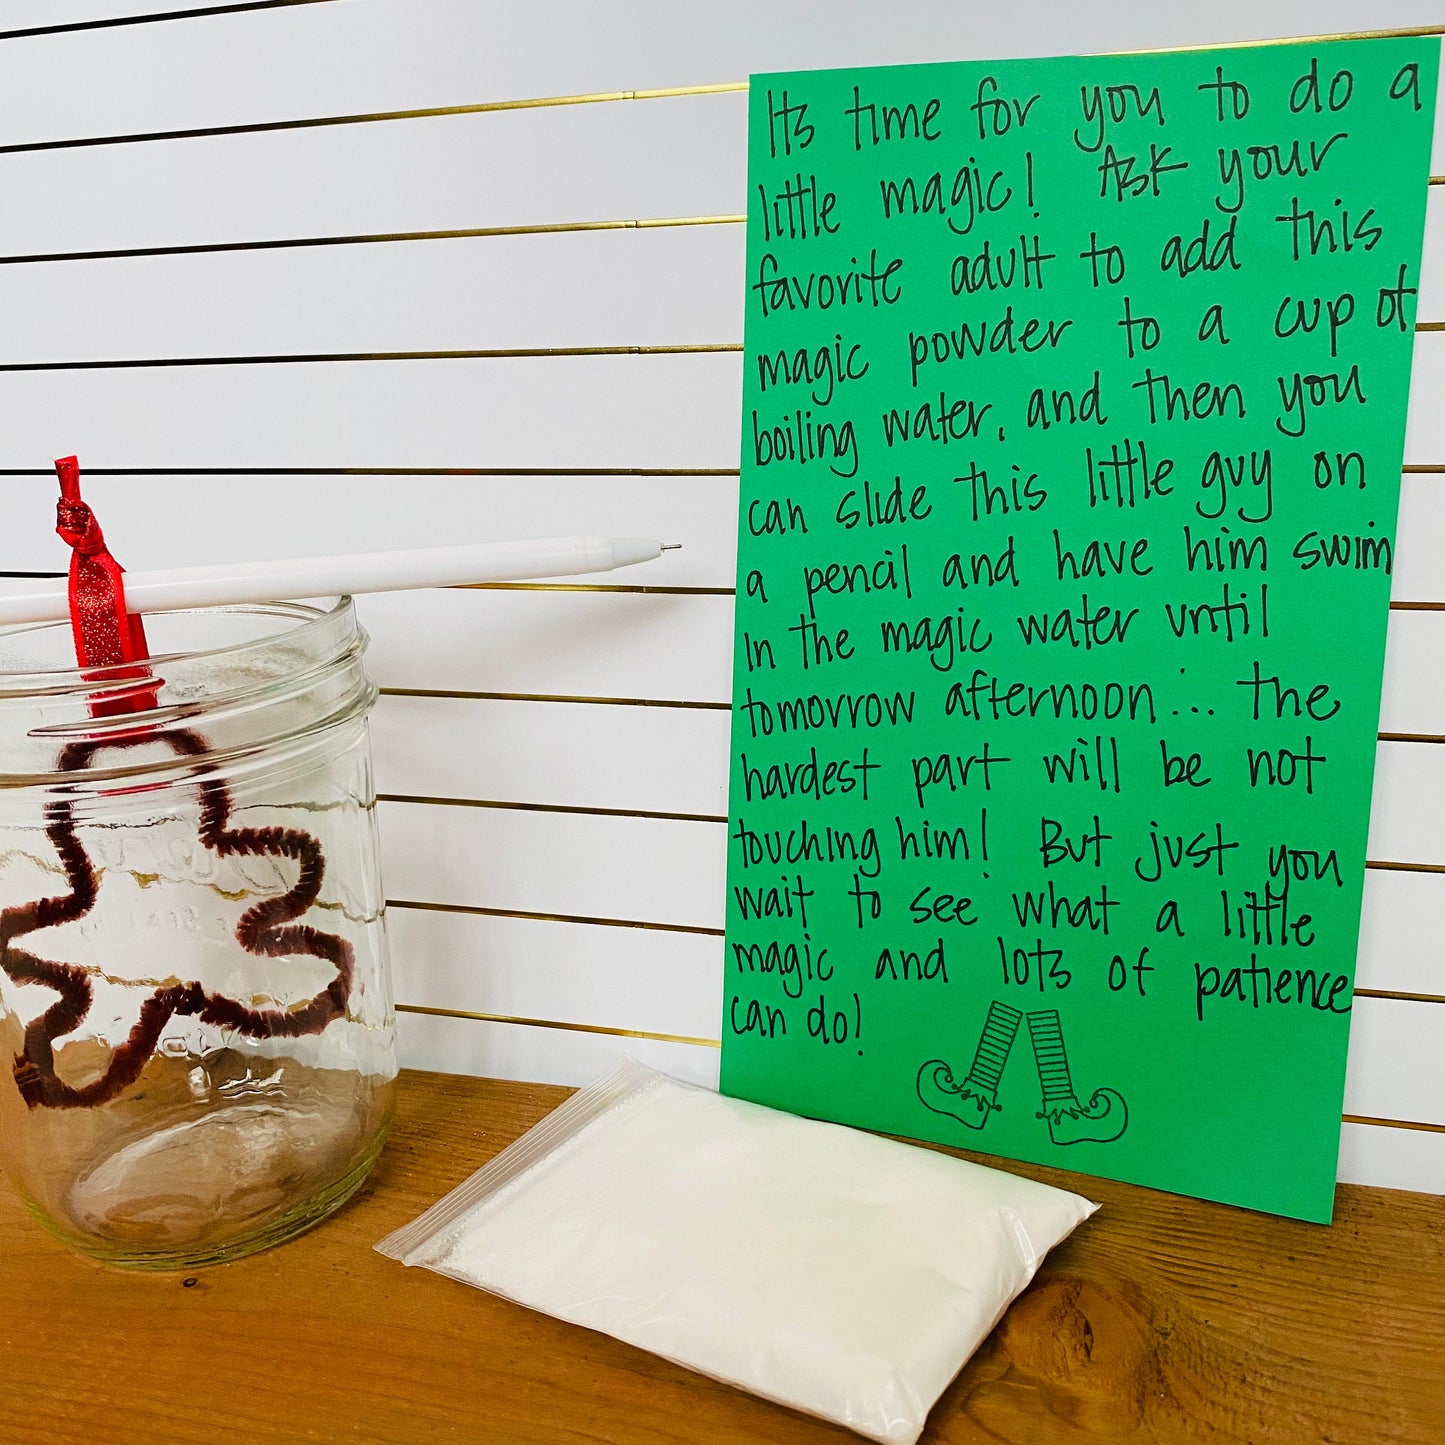 Its time for you to do a
little magic! Ask your
favorite adult to add this
magic powder to a cup of
boiling water, and then you
can slide this little guy on
a pencil and have him swim
in the magic water until
tomorrow afternoon... the
hardest part will be not
touching him! But just you
wait to see what a little
magic and lots of patience
can do!